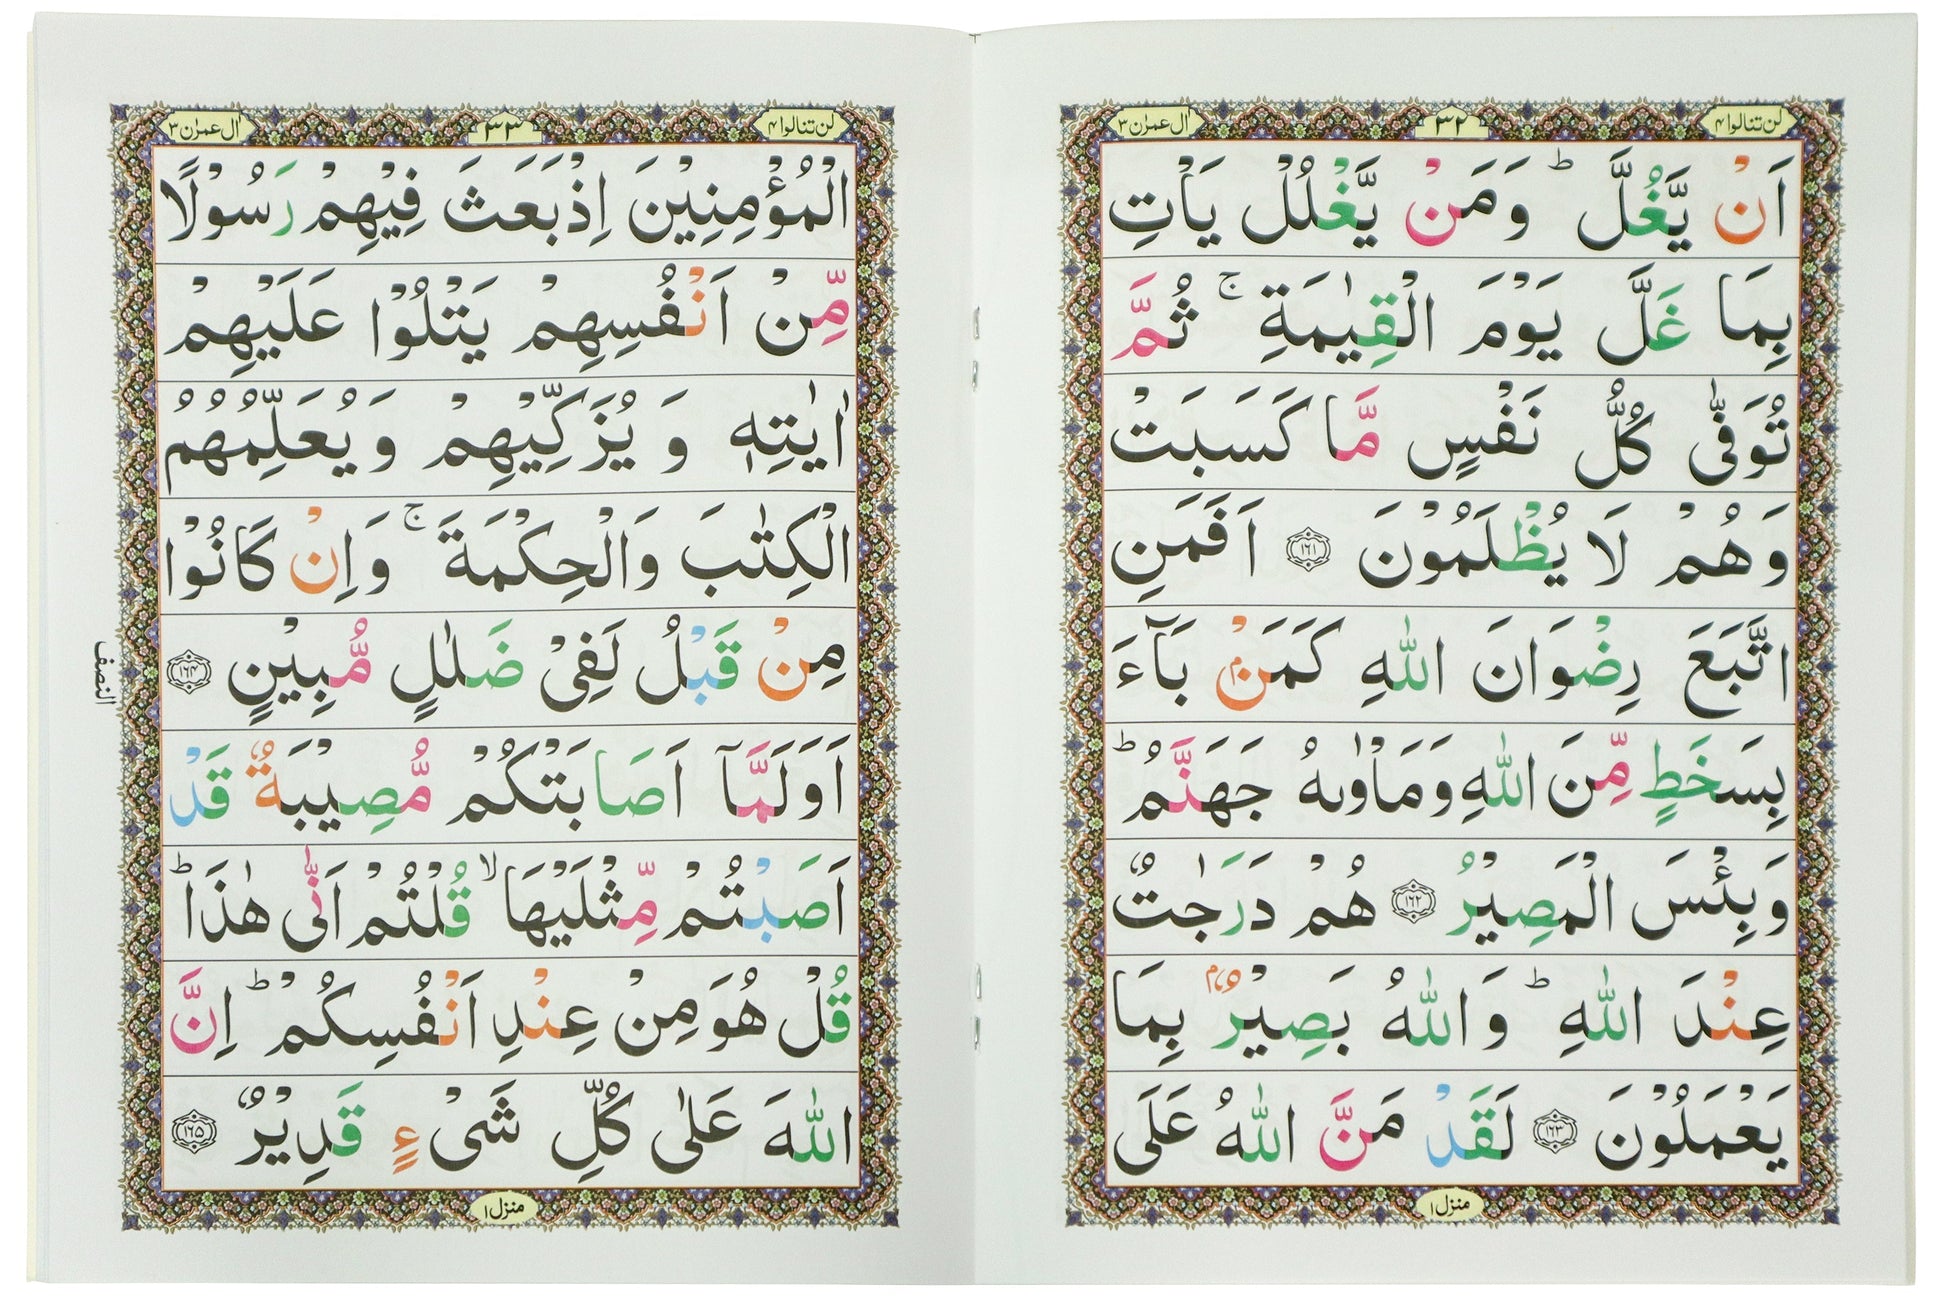 لن تنالوا ۴
۳۲
اٰل عمرٰن ۳
اَنْ يَّغُلَّ ؕ وَمَنْ يَّغْلُلْ يَاْتِ
بِمَا غَلَّ يَوْمَ الْقِيٰمَةِ ۚ ثُمَّ
تُوَفّٰى كُلُّ نَفْسٍ مَّا كَسَبَتْ
وَهُمْ لَا يُظْلَمُوْنَ ۝۱۶۱ اَفَمَنِ
اتَّبَعَ رِضْوَانَ اللّٰهِ كَمَنْۢ بَآءَ
بِسَخَطٍ مِّنَ اللّٰهِ وَمَاْوٰىهُ جَهَنَّمُ ؕ
وَبِئْسَ الْمَصِيْرُ ۝۱۶۲ هُمْ دَرَجٰتٌ
عِنْدَ اللّٰهِ ؕ وَاللّٰهُ بَصِيْرٌۢ بِمَا
يَعْمَلُوْنَ ۝۱۶۳ لَقَدْ مَنَّ اللّٰهُ عَلَى
منزل ۱
لن تنالوا ۴
۳۳
اٰل عمرٰن ۳
الْمُؤْمِنِيْنَ اِذْ بَعَثَ فِيْهِمْ رَسُوْلًا
مِّنْ اَنْفُسِهِمْ يَتْلُوْا عَلَيْهِمْ
اٰيٰتِهٖ وَيُزَكِّيْهِمْ وَيُعَلِّمُهُمُ
الْكِتٰبَ وَالْحِكْمَةَ ۚ وَاِنْ كَانُوْا
مِنْ قَبْلُ لَفِىْ ضَلٰلٍ مُّبِيْنٍ ۝۱۶۴
اَوَلَمَّآ اَصَابَتْكُمْ مُّصِيْبَةٌ قَدْ
اَصَبْتُمْ مِّثْلَيْهَا ۙ قُلْتُمْ اَنّٰى هٰذَا ؕ
قُلْ هُوَ مِنْ عِنْدِ اَنْفُسِكُمْ ؕ اِنَّ
اللّٰهَ عَلٰى كُلِّ شَىْءٍ قَدِيْرٌ ۝۱۶۵
منزل ۱
النصف